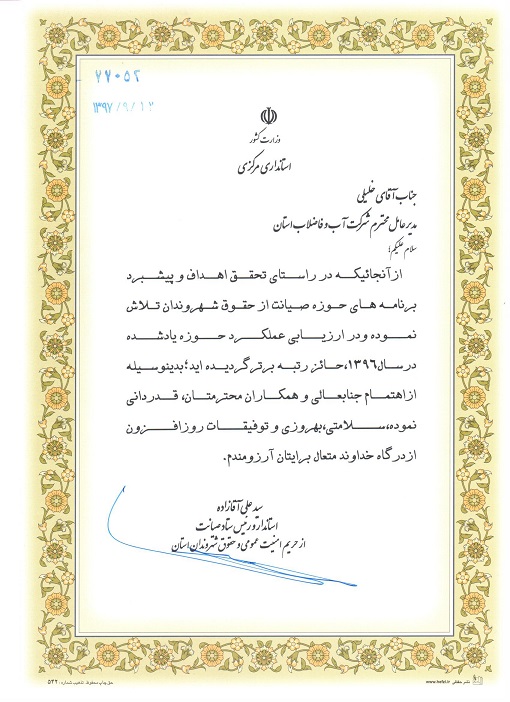 ۲۲۰۵۲
۱۳۹۷/۹/۱۲
وزارت کشور
استانداری مرکزی
جناب آقای خلیلی
مدیرعامل محترم شرکت آب و فاضلاب استان
سلام علیکم؛
از آنجائیکه در راستای تحقق اهداف و پیشبرد
برنامه های حوزه صیانت از حقوق شهروندان تلاش
نموده و در ارزیابی عملکرد حوزه یادشده
در سال ۱۳۹۶، حائز رتبه برتر گردیده اید؛ بدینوسیله
از اهتمام جنابعالی و همکاران محترمتان، قدردانی
نموده، سلامتی، بهروزی و توفیقات روزافزون
از درگاه خداوند متعال برایتان آرزومندم.
سید علی آقازاده
استاندار و رئیس ستاد صیانت
از حریم امنیت عمومی و حقوق شهروندان استان
حق چاپ محفوظ. تذهیب شماره: ۵۳۲
www.hefzi.ir